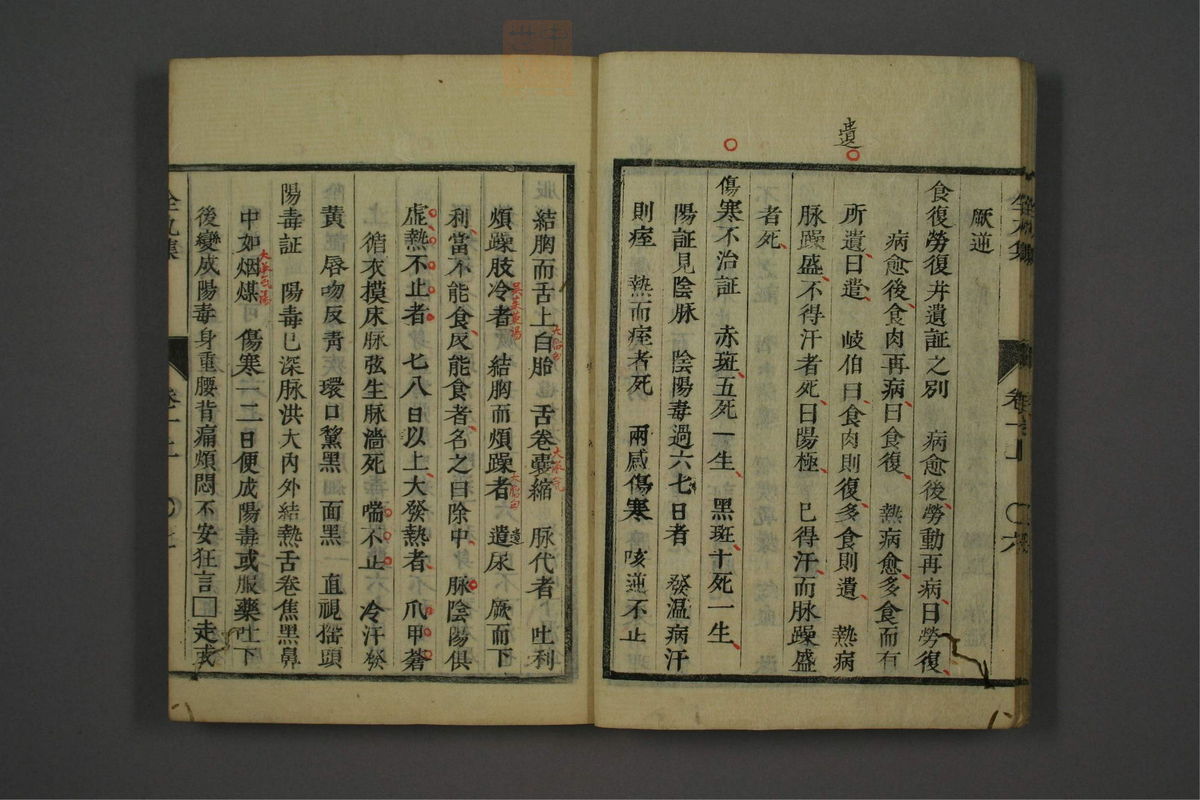 遺
厥逆
食復勞復并遺証之別　病愈後勞動再病曰勞復
病愈後食肉再病曰食復　熱病愈多食而有
所遺曰遺　岐伯曰食肉則復多食則遺　熱病
脉躁盛不得汗者死曰陽極　已得汗而脉躁盛
者死
傷寒不治証　赤斑五死一生　黑斑十死一生
陽証見陰脉　陰陽毒過六七日者　發温病汗
則痓　熱而痓者死　兩感傷寒　咳逆不止
結胸而舌上白胎　舌卷囊縮　脉代者　吐利
煩躁肢冷者　結胸而煩躁者　遺尿　厥而下
利當不能食反能食者名之曰除中　脉陰陽俱
虛熱不止者　七八日以上大發熱者　爪甲青
循衣摸床脉弦生脉濇死　喘不止　冷汗發
黃　唇吻反青　環口黧黑　面黑　直視揺頭
陽毒証　陽毒已深脉洪大內外結熱舌卷焦黑鼻
中如烟煤　傷寒一二日便成陽毒或服藥吐下
後變成陽毒身重腰背痛煩悶不安狂言□走或